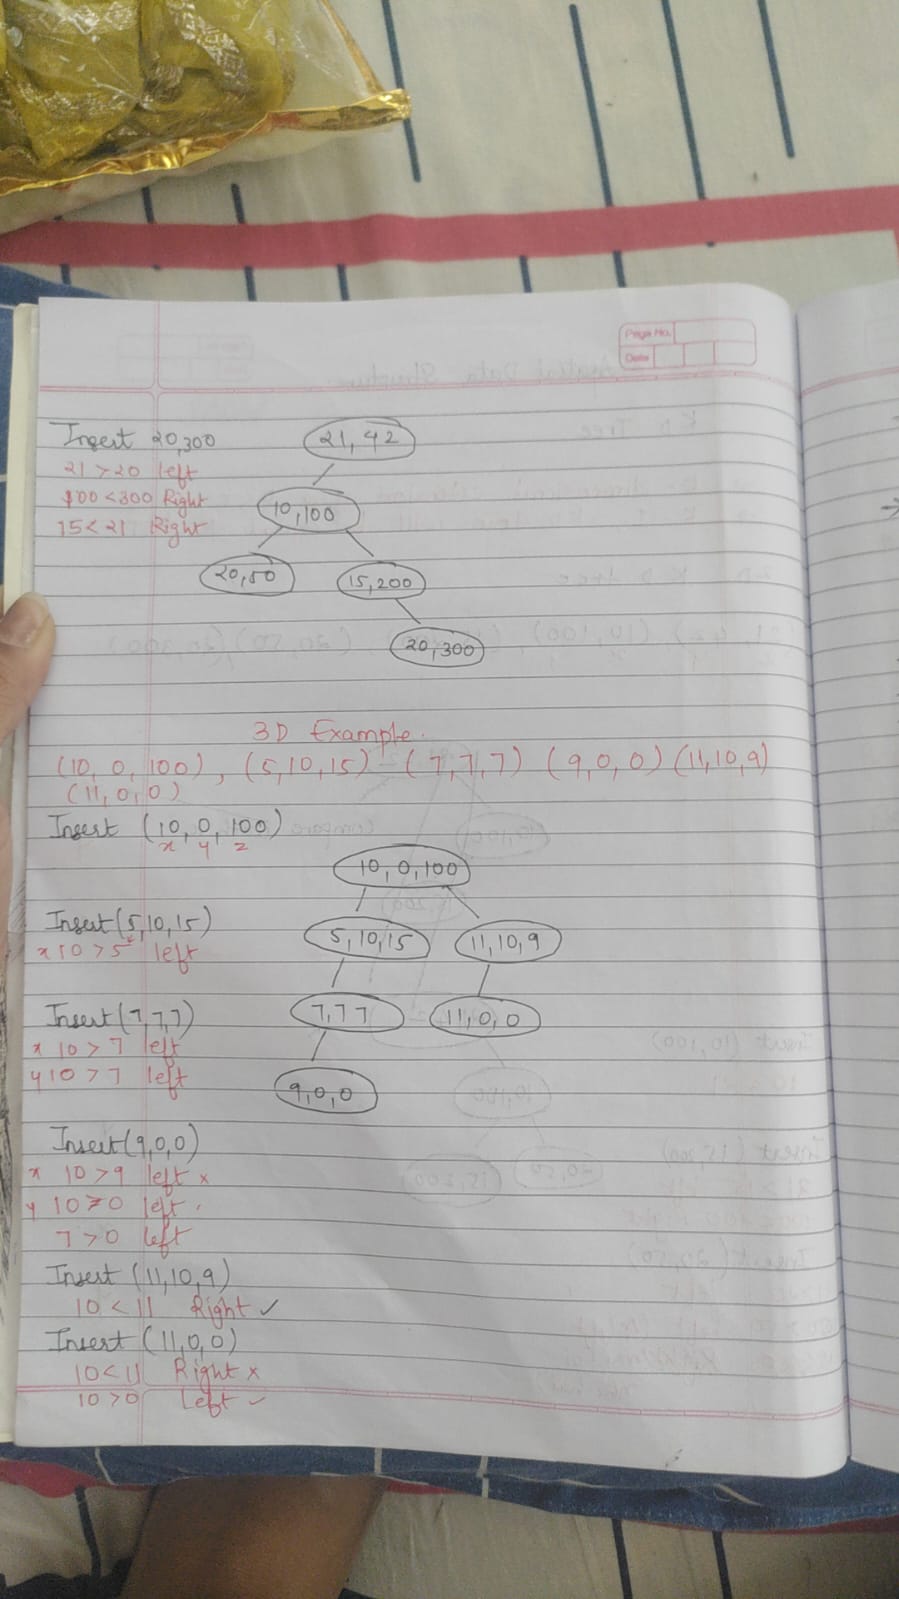 Page No.
Date
Insert 20,300
21 > 20 left
100 < 300 Right
15 < 21 Right
21, 42
10,100
20,50
15,200
20,300
3D Example.
(10, 0, 100), (5,10,15) (7,7,7) (9,0,0) (11,10,9)
(11,0,0)
Insert (10, 0, 100)
x y z
10, 0,100
Insert (5,10,15)
x 10 > 5 left
5,10,15
11,10,9
Insert (7,7,7)
x 10 > 7 left
y 10 > 7 left
7,77
11,0,0
9,0,0
Insert (9,0,0)
x 10 > 9 left x
y 10 > 0 left
7 > 0 left
Insert (11,10,9)
10 < 11 Right ✓
Insert (11,0,0)
10 < 11 Right x
10 > 0 Left ✓